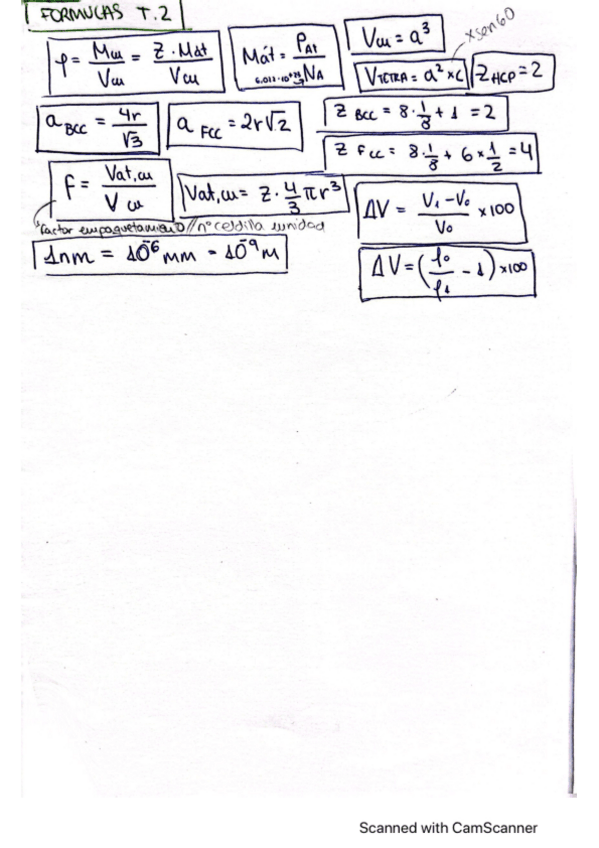 FORMULAS T.2
ρ = Mcu / Vcu = Z · Mát / Vcu
Mát = PAt / NA
6.023·10^23
Vcu = a³
VTETRA = a² × c
× sen60
ZHCP = 2
a BCC = 4r / √3
a FCC = 2r√2
Z BCC = 8 · 1/8 + 1 = 2
Z FCC = 8 · 1/8 + 6 × 1/2 = 4
F = Vat,cu / Vcu
Vat,cu = Z · 4/3 πr³
factor empaquetamiento // nº celdilla unidad
ΔV = V1 - V0 / V0 × 100
1nm = 10^-6 mm = 10^-9 M
ΔV = (ρ0 / ρ1 - 1) × 100
Scanned with CamScanner